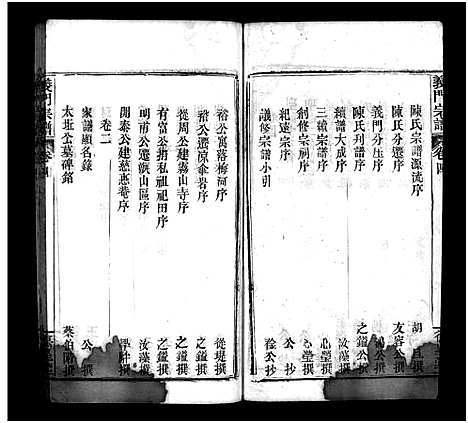 義門宗譜
卷四
陳氏宗譜源流序
胡旦撰
陳氏分遷序
友容公撰
義門分庄序
公撰
陳氏列譜序
之鎧公撰
續譜大成序
汝藻撰
三續宗譜序
心瑩撰
創修宗祠序
心瑩撰
紀遠宗序
公抄
議修宗譜小引
徐公抄
裕公寓落梅河序
從堤撰
裕公遷凉傘岩序
之鎧撰
從周公建霧山寺序
之鎧撰
有富公捐私祖祖田序
之鎧撰
明甫公遷嶡山區序
汝藻撰
開泰公建慈惠菴序
撰
卷二
家譜顯名錄
公撰
太班公墓碑銘
蔡伯陽撰
義門宗譜
卷四